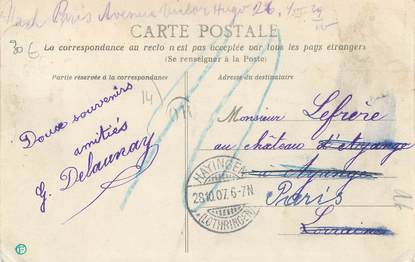 Nach Paris Avenue Victor Hugo 26
CARTE POSTALE
La correspondance au recto n'est pas acceptée par tous les pays étrangers
(Se renseigner à la Poste)
Partie réservée à la correspondance
Adresse du destinataire
Doux souvenirs
amitiés
G. Delaunay
Monsieur Lefrère
au château d'Ayange
à Ayange
Paris
Lorraine
HAYINGEN
28.10.07. 6-7N
(LOTHRINGEN)